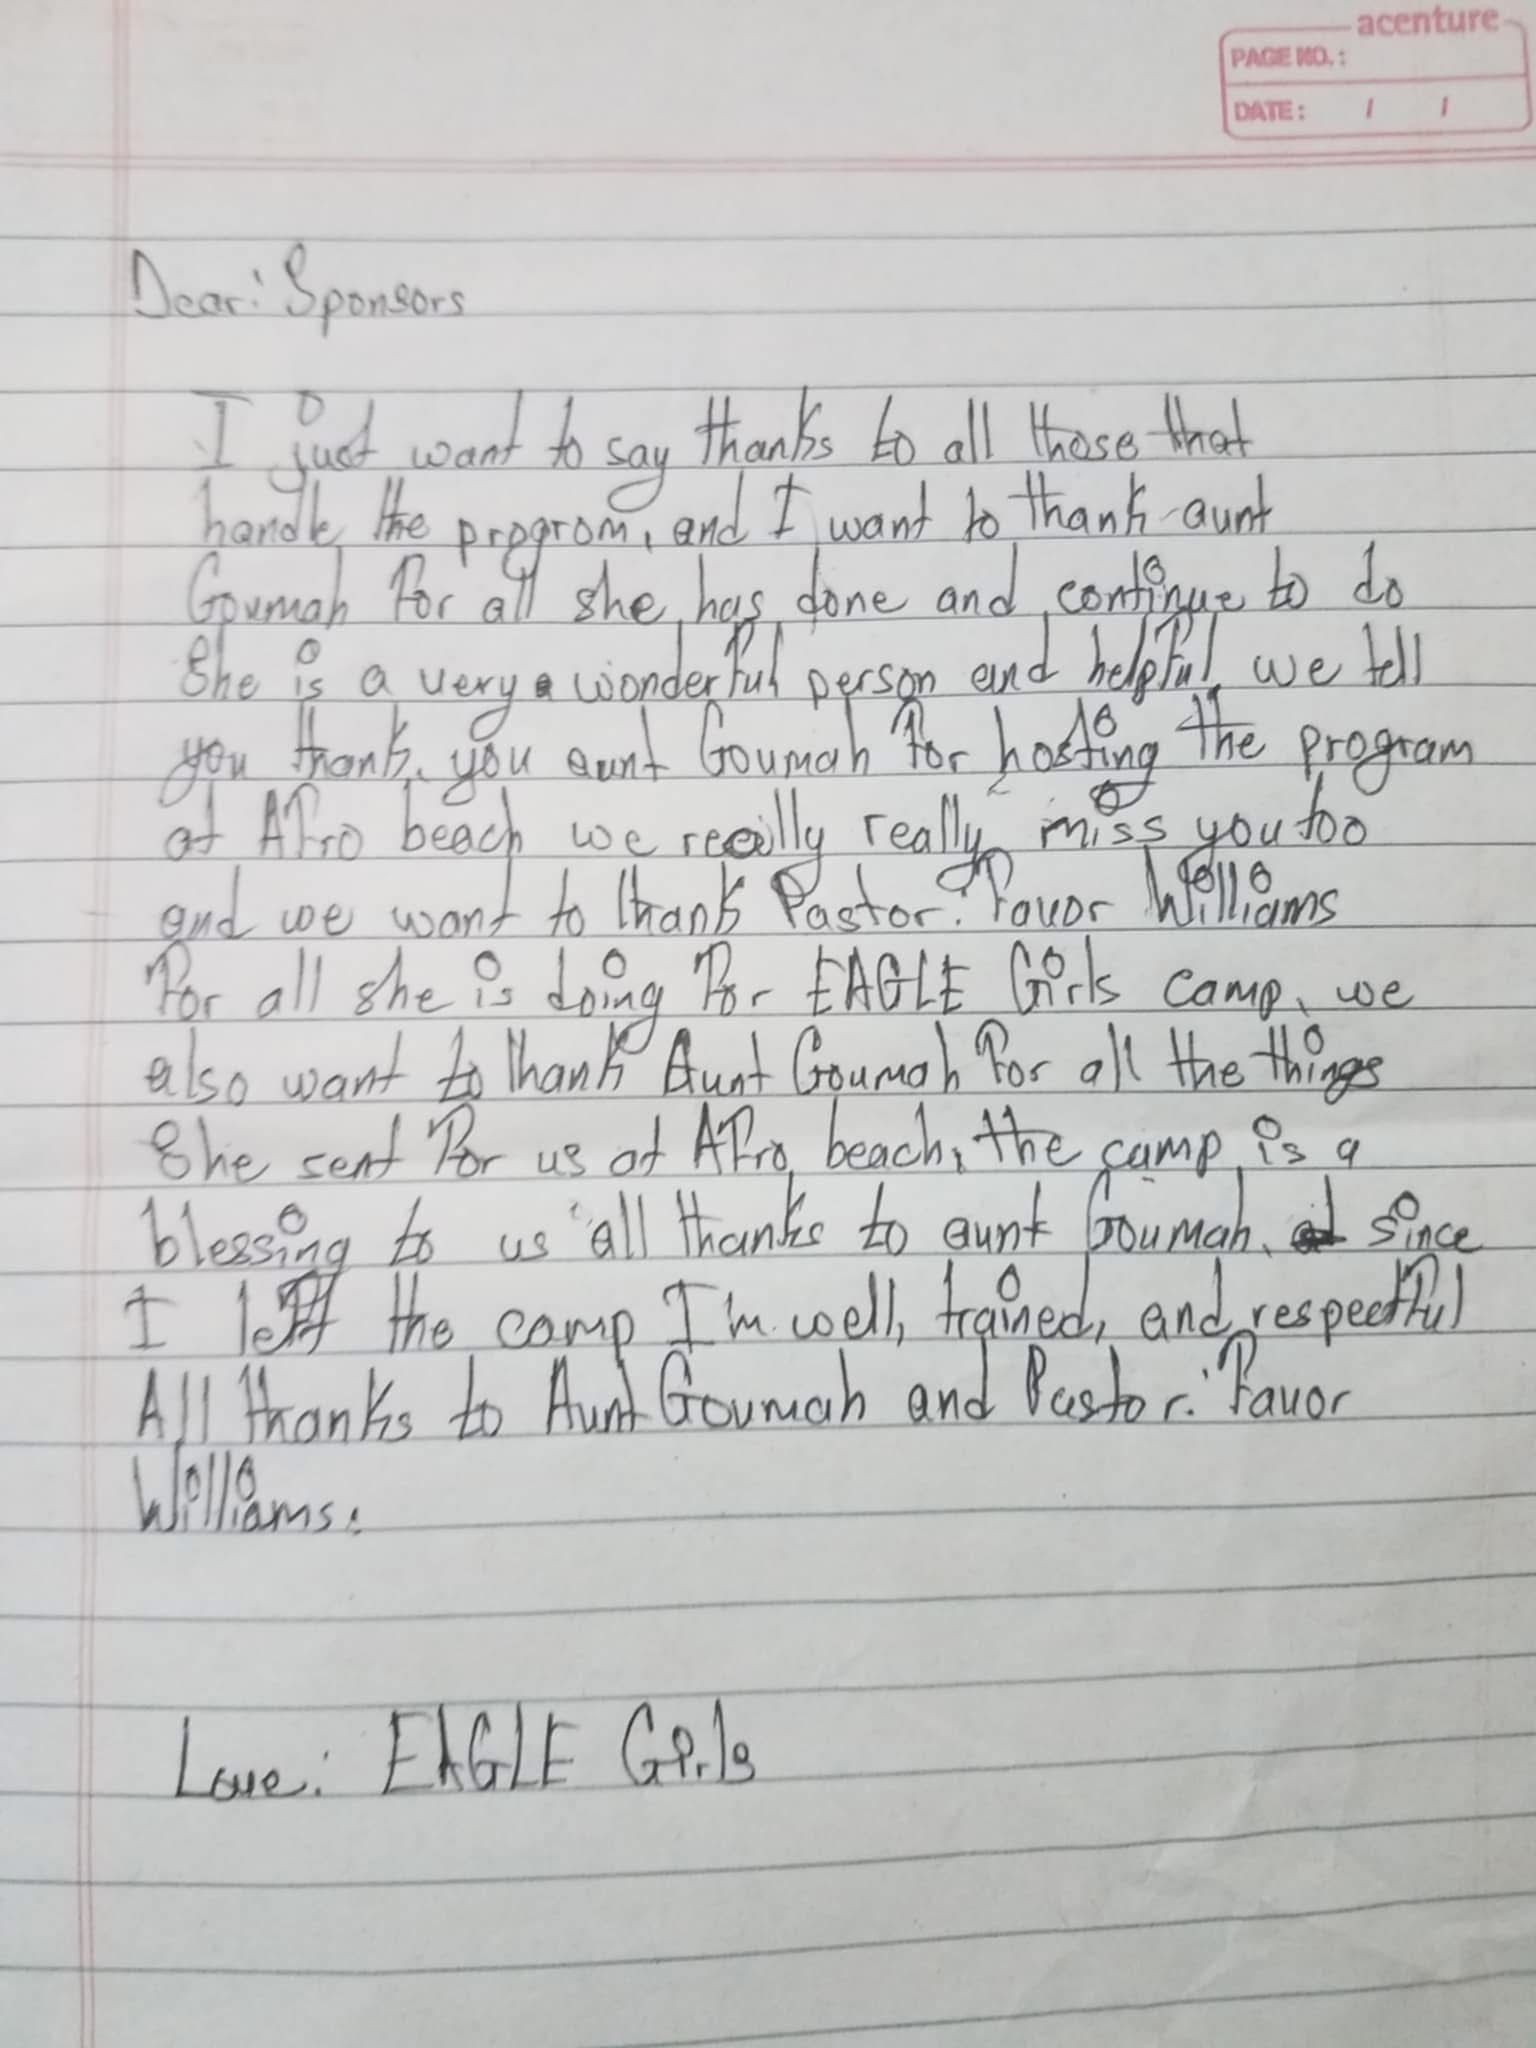 acenture
PAGE NO.:
DATE: / /
Dear: Sponsors
I just want to say thanks to all those that
handle the program, and I want to thank aunt
Goumah For all she has done and continue to do
She is a very wonderful person and helpful, we tell
you thank you aunt Goumah For hosting the program
at AFro beach we really really miss you too
and we want to thank Pastor: Favor Williams
For all she is doing For EAGLE Girls camp, we
also want to thank Aunt Goumah For all the things
She sent For us at AFro beach, the camp is a
blessing to us all thanks to aunt Goumah, since
I left the camp I'm well, trained, and respectful
All thanks to Aunt Goumah and Pastor: Favor
Williams:
Love: EAGLE Girls